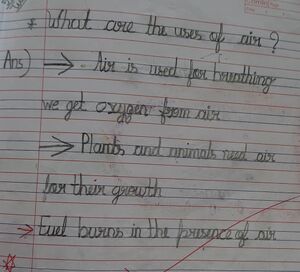 * What are the uses of air?
Ans) → Air is used for breathing
we get oxygen from air
→ Plants and animals need air
for their growth
→ Fuel burns in the presence of air